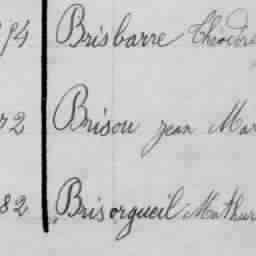 Brisbarre Théodore
82 Brisou jean Mar
82 Brisorgueil Mathur